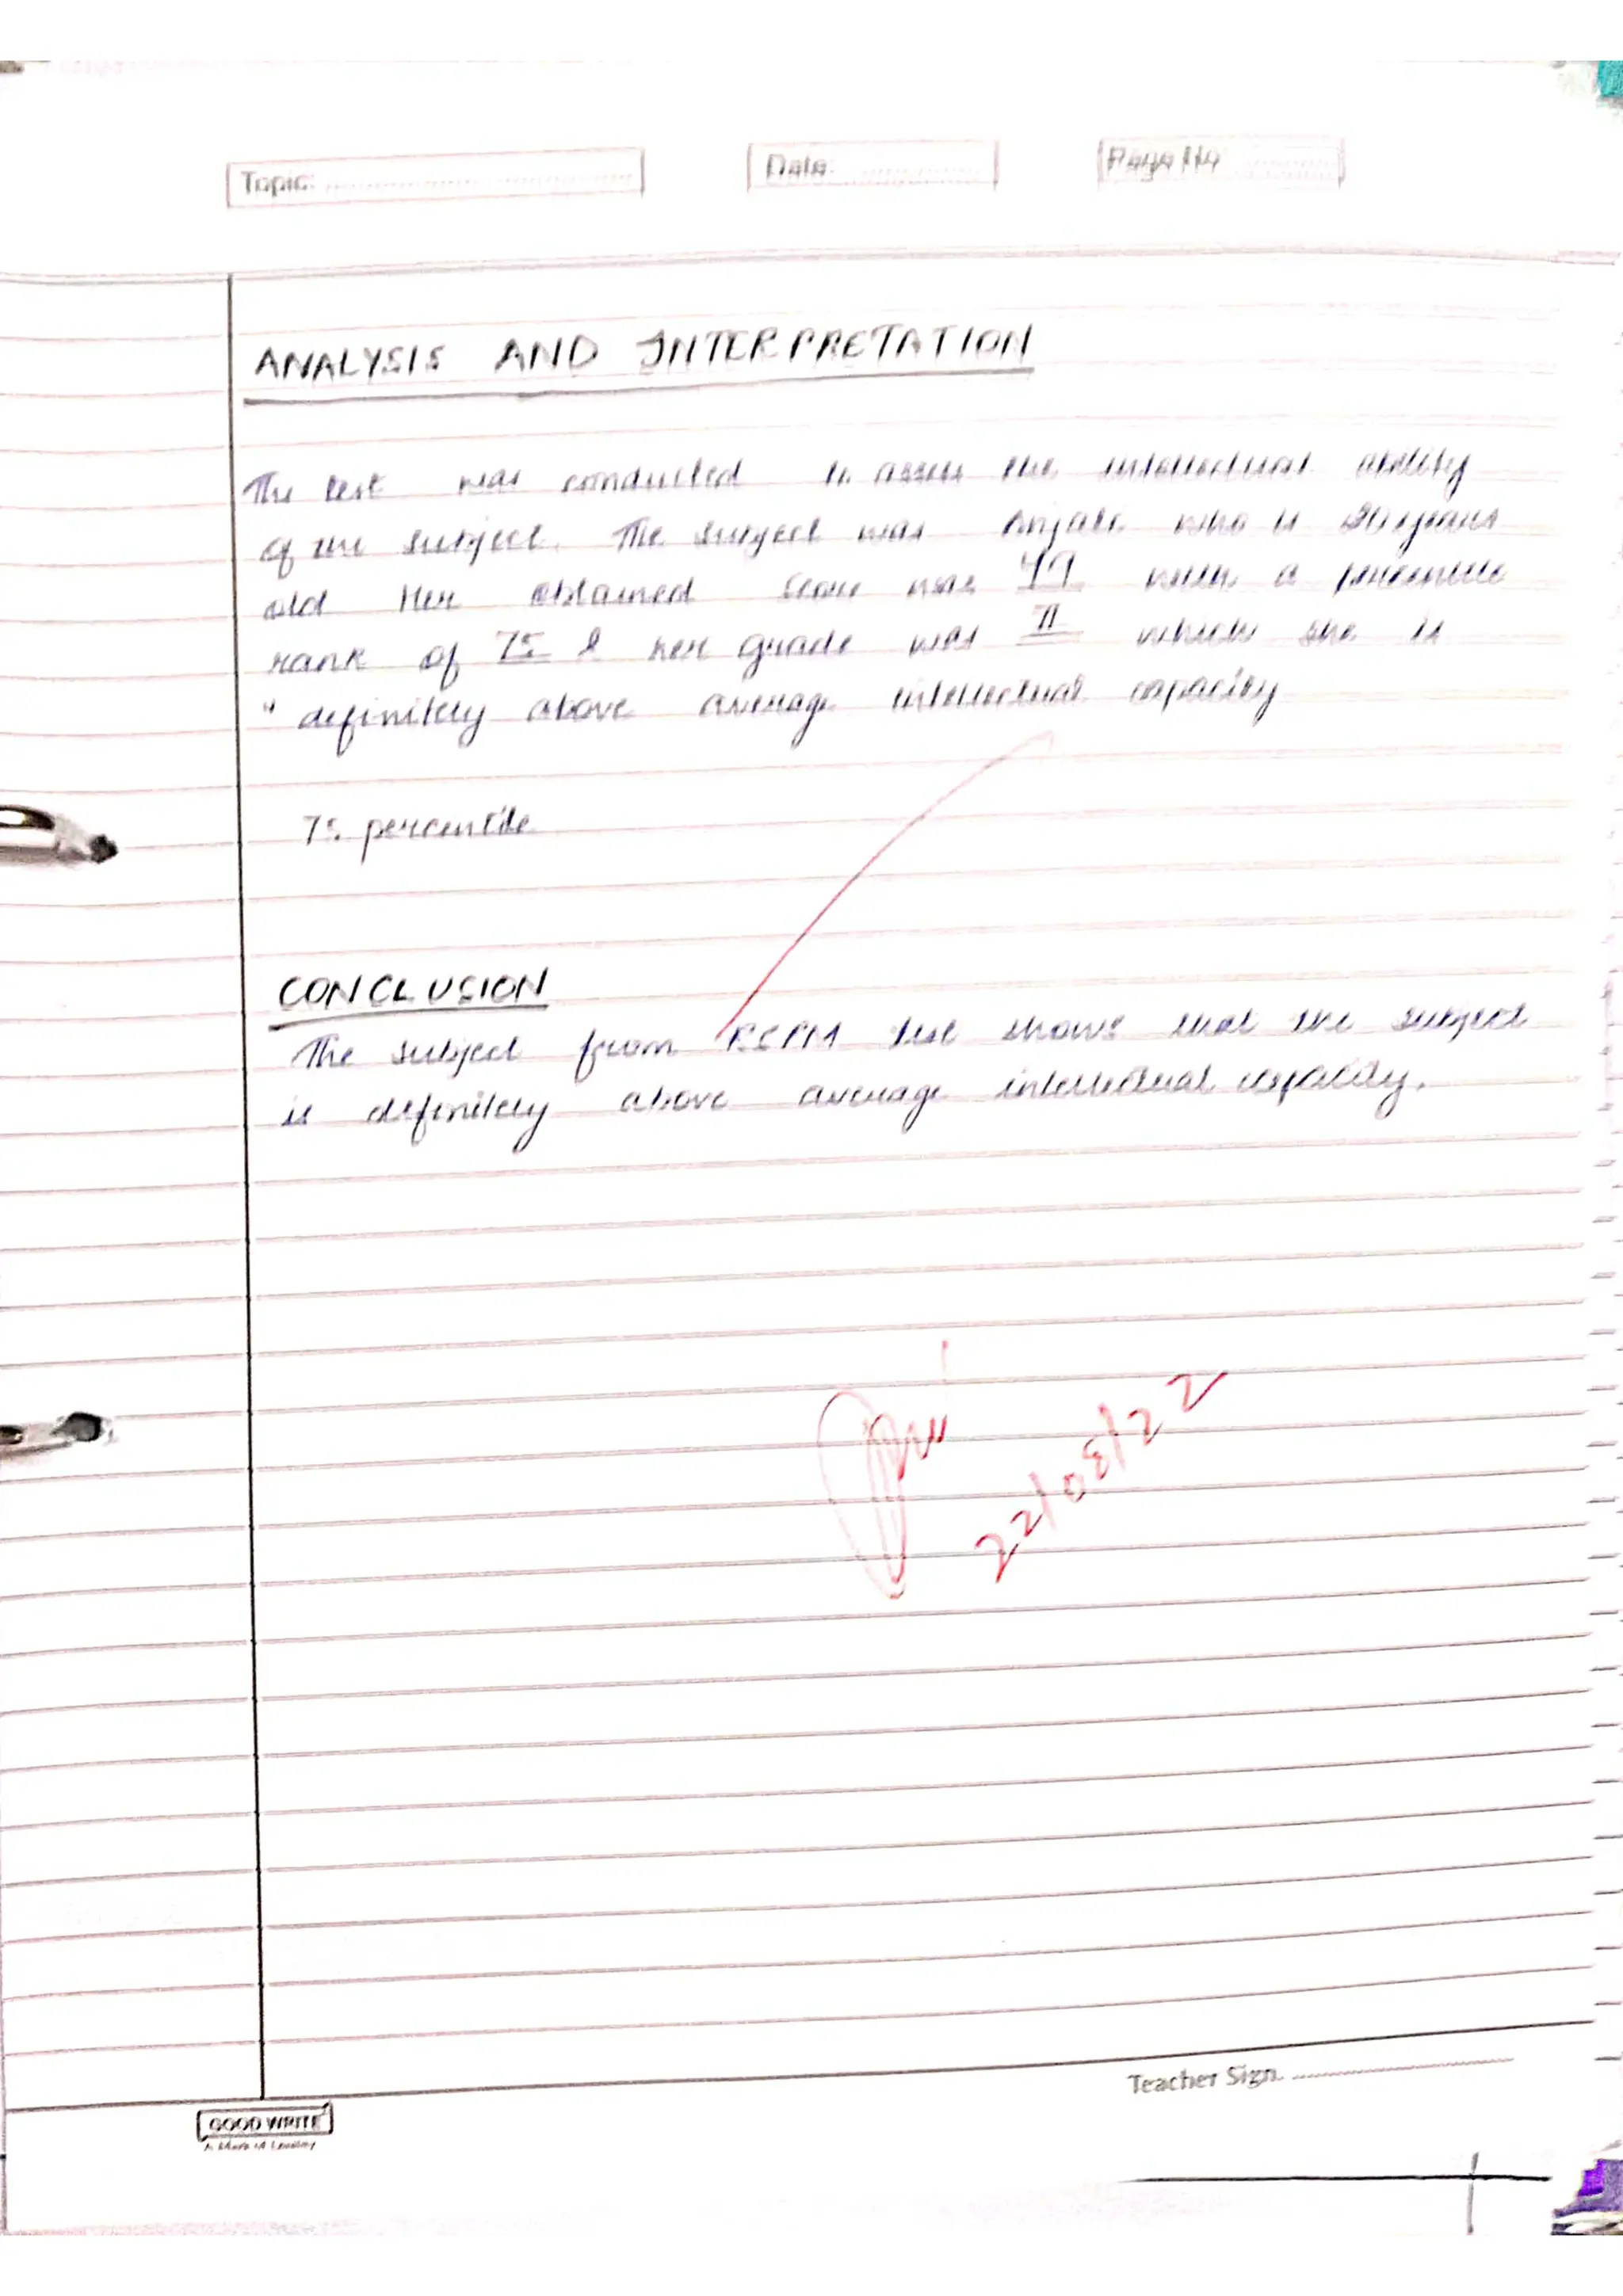 Topic:
Date:
Page No
ANALYSIS AND INTERPRETATION
The test was conducted to assess the intellectual ability
of the subject. The subject was Anjali who is 20 years
old Her obtained score was 49 with a percentile
rank of 75 & her grade was II which she is
" definitely above average intellectual capacity
75 percentile
CONCLUSION
The subject from RSPM test shows that the subject
is definitely above average intellectual capacity.
22/08/22
Teacher Sign.
GOOD WRITE
A Mark of Quality